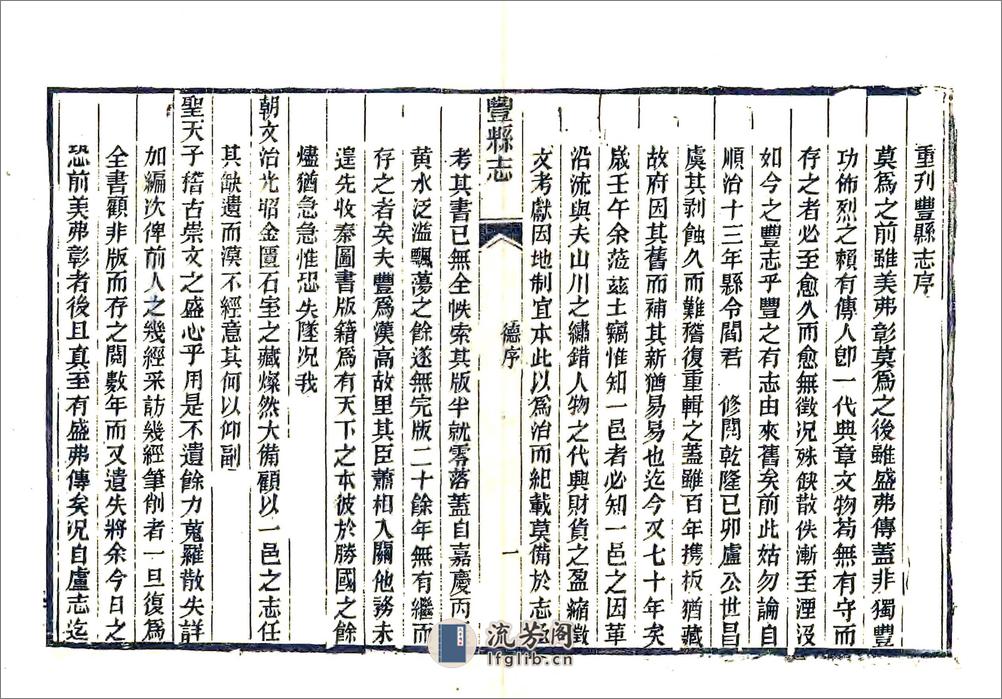 重刊豐縣志序
莫爲之前雖美弗彰莫爲之後雖盛弗傳蓋非獨豐
功佈烈之賴有傳人卽一代典章文物苟無有守而
存之者必至愈久而愈無徵况殊缺散佚漸至湮沒
如今之豐志乎豐之有志由來舊矣前此姑勿論自
順治十三年縣令閻君 修閱乾隆已卯盧公世昌
虞其剥蝕久而難稽復重輯之蓋雖百年携板猶藏
故府因其舊而補其新猶易易也迄今又七十年矣
歲壬午余莅兹土竊惟知一邑者必知一邑之因革
沿流與夫山川之繡錯人物之代興財貨之盈縮徵
文考獻因地制宜本此以爲治而紀載莫備於志
豐縣志
德序
一
考其書已無全帙索其版半就零落蓋自嘉慶丙
黄水泛滥飄蕩之餘遂無完版二十餘年無有繼而
存之者矣夫豐爲漢高故里其臣蕭相入關他務未
遑先收秦圖書版籍爲有天下之本彼於勝國之餘
燼猶急急惟恐失墜况我
朝文治光昭金匱石室之藏燦然大備顧以一邑之志任
其缺遺而漠不經意其何以仰副
聖天子稽古崇文之盛心乎用是不遺餘力蒐羅散失詳
加編次俾前人之幾經采訪幾經筆削者一旦復爲
全書顧非版而存之閲數年而又遺失將余今日之
恐前美弗彰者後且真至有盛弗傳矣况自盧志迄
流芳阁
lfglib.cn